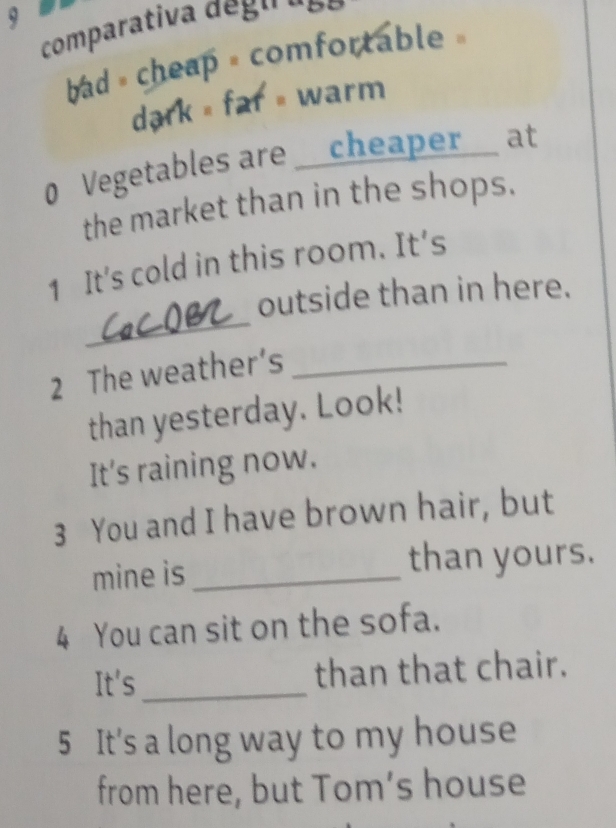 9
comparativa degli
bad ▪ cheap ▪ comfortable ▪
dark ▪ far ▪ warm
0 Vegetables are cheaper at
the market than in the shops.
1 It's cold in this room. It's
outside than in here.
2 The weather's ________
than yesterday. Look!
It's raining now.
3 You and I have brown hair, but
mine is ________ than yours.
4 You can sit on the sofa.
It's ________ than that chair.
5 It's a long way to my house
from here, but Tom's house